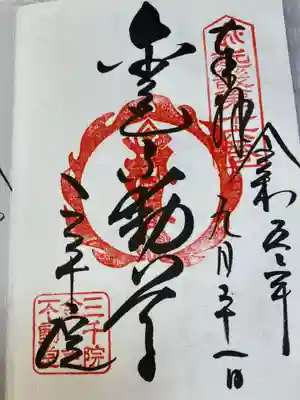 奉拝
令和
年
九月二十一日
金色不動尊
三千院
三千院
不動堂